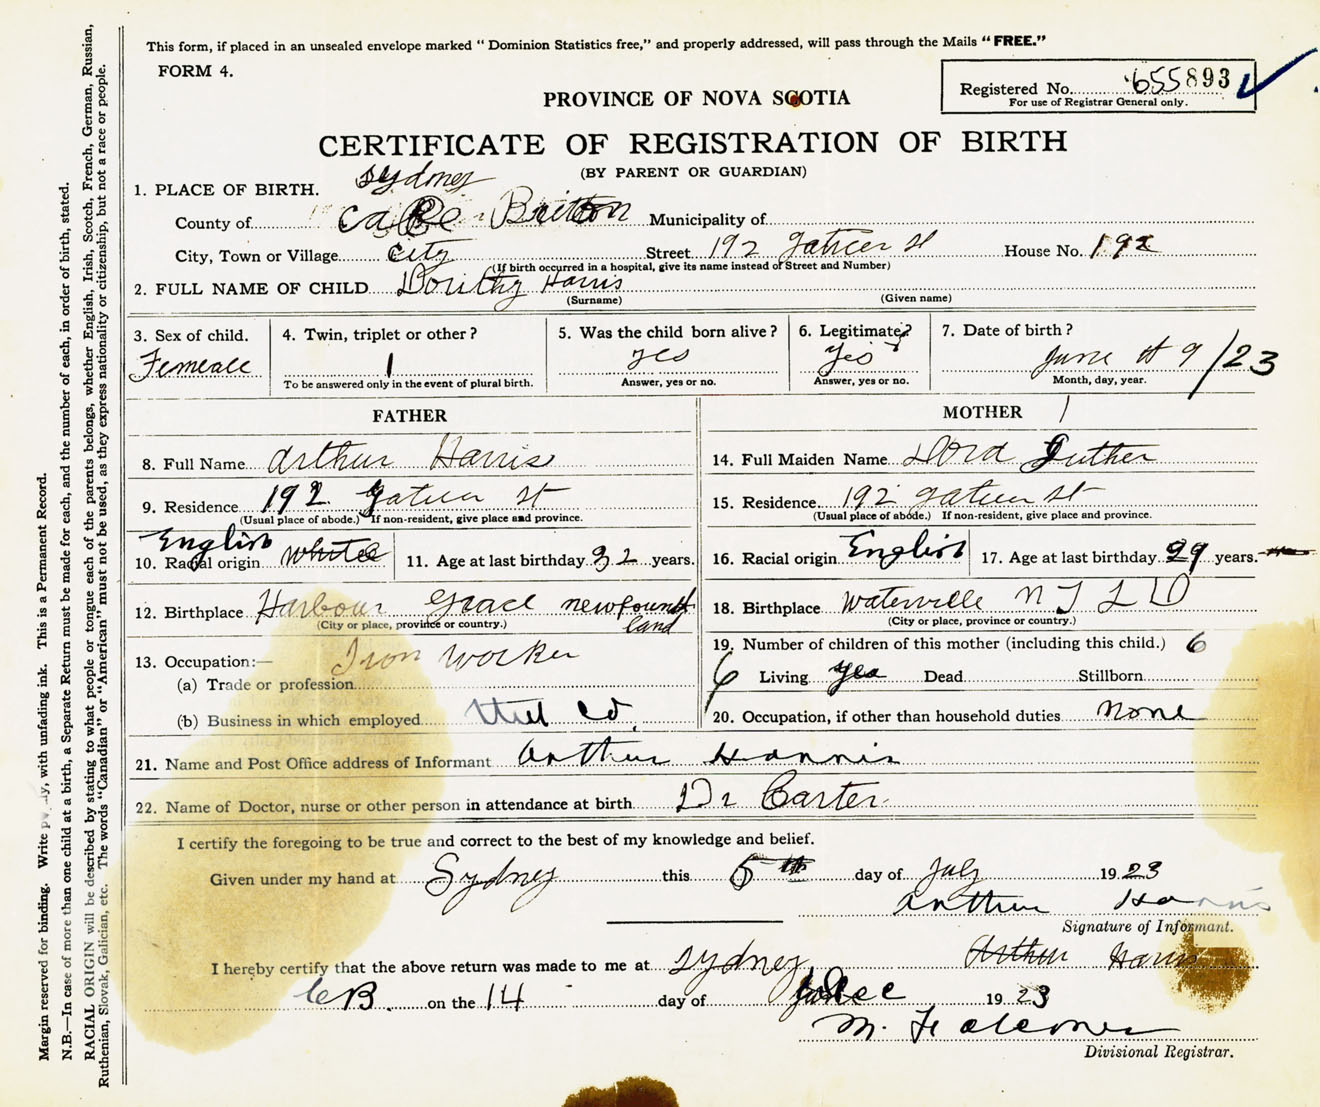 This form, if placed in an unsealed envelope marked “ Dominion Statistics free,” and properly addressed, will pass through the Mails “ FREE.”
FORM 4.
Registered No. 655893
For use of Registrar General only.
PROVINCE OF NOVA SCOTIA
CERTIFICATE OF REGISTRATION OF BIRTH
(BY PARENT OR GUARDIAN)
1. PLACE OF BIRTH. Sydney
County of Cape Britton Municipality of
City, Town or Village City Street 192 St House No. 192
(If birth occurred in a hospital, give its name instead of Street and Number)
2. FULL NAME OF CHILD Dorithy Harris
(Surname) (Given name)
3. Sex of child. 4. Twin, triplet or other ? 5. Was the child born alive ? 6. Legitimate? 7. Date of birth ?
Femeale 1 yes yes June 9/23
To be answered only in the event of plural birth. Answer, yes or no. Answer, yes or no. Month, day, year.
FATHER MOTHER
8. Full Name Arthur Harris
9. Residence 192 St
(Usual place of abode.) If non-resident, give place and province.
English
10. Racial origin white 11. Age at last birthday 32 years.
12. Birthplace Harbour Grace newfound
(City or place, province or country.) land
13. Occupation:— Iron Worker
(a) Trade or profession
(b) Business in which employed Steel Co.
14. Full Maiden Name Dora
15. Residence 192 St
(Usual place of abode.) If non-resident, give place and province.
16. Racial origin English 17. Age at last birthday 29 years.
18. Birthplace Waterville N F L D
(City or place, province or country.)
19. Number of children of this mother (including this child.) 6
6 Living yes Dead Stillborn
20. Occupation, if other than household duties None
21. Name and Post Office address of Informant Arthur Harris
22. Name of Doctor, nurse or other person in attendance at birth Dr Carter
I certify the foregoing to be true and correct to the best of my knowledge and belief.
Given under my hand at Sydney this 5th day of July 1923
Arthur Harris
Signature of Informant.
Arthur Harris
I hereby certify that the above return was made to me at Sydney
C B. on the 14 day of 1923
M.
Divisional Registrar.
Margin reserved for binding. Write with unfading ink. This is a Permanent Record.
N.B.—In case of more than one child at a birth, a Separate Return must be made for each, and the number of each, in order of birth, stated.
RACIAL ORIGIN will be described by stating to what people or tongue each of the parents belongs, whether English, Irish, Scotch, French, German, Russian,
Ruthenian, Slovak, Galician, etc. The words “Canadian” or “American” must not be used, as they express nationality or citizenship, but not a race or people.